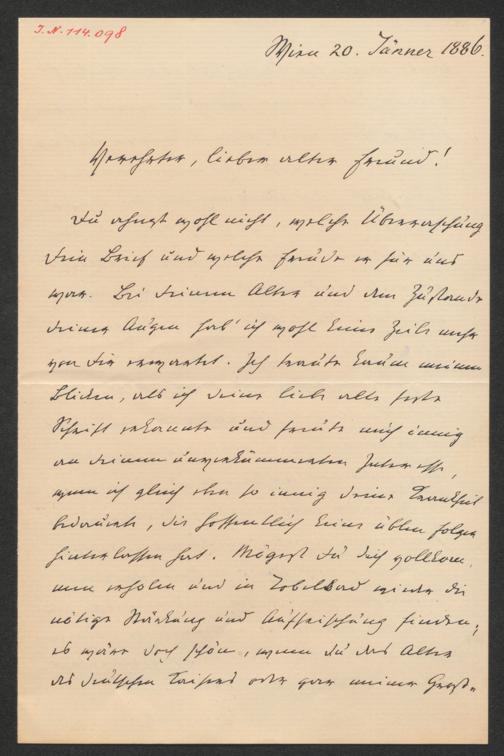 I.N. 114.098
Wien 20. Jänner 1886.
Verehrter, lieber alter Freund!
Du ahnst wohl nicht, welche Überraschung
Dein Brief und welche Freude er für uns
war. Bei Deinem Alter und dem Zustande
Deiner Augen hab' ich wohl keine Zeile mehr
von Dir erwartet. Ich traute kaum meinen
Blicken, als ich Deine liebe alte feste
Schrift erkannte und freute mich innig
an Deinem unverkümmerten Interesse,
wenn ich gleich eben so innig Deine Krankheit
bedauerte, die hoffentlich keine üblen Folgen
hinterlassen hat. Mögest Du Dich vollkom-
men erholen und in Tobelbad wieder die
nötige Stärkung und Auffrischung finden;
es wäre doch schön, wenn Du das Alter
des deutschen Kaisers oder gar meiner Groß-